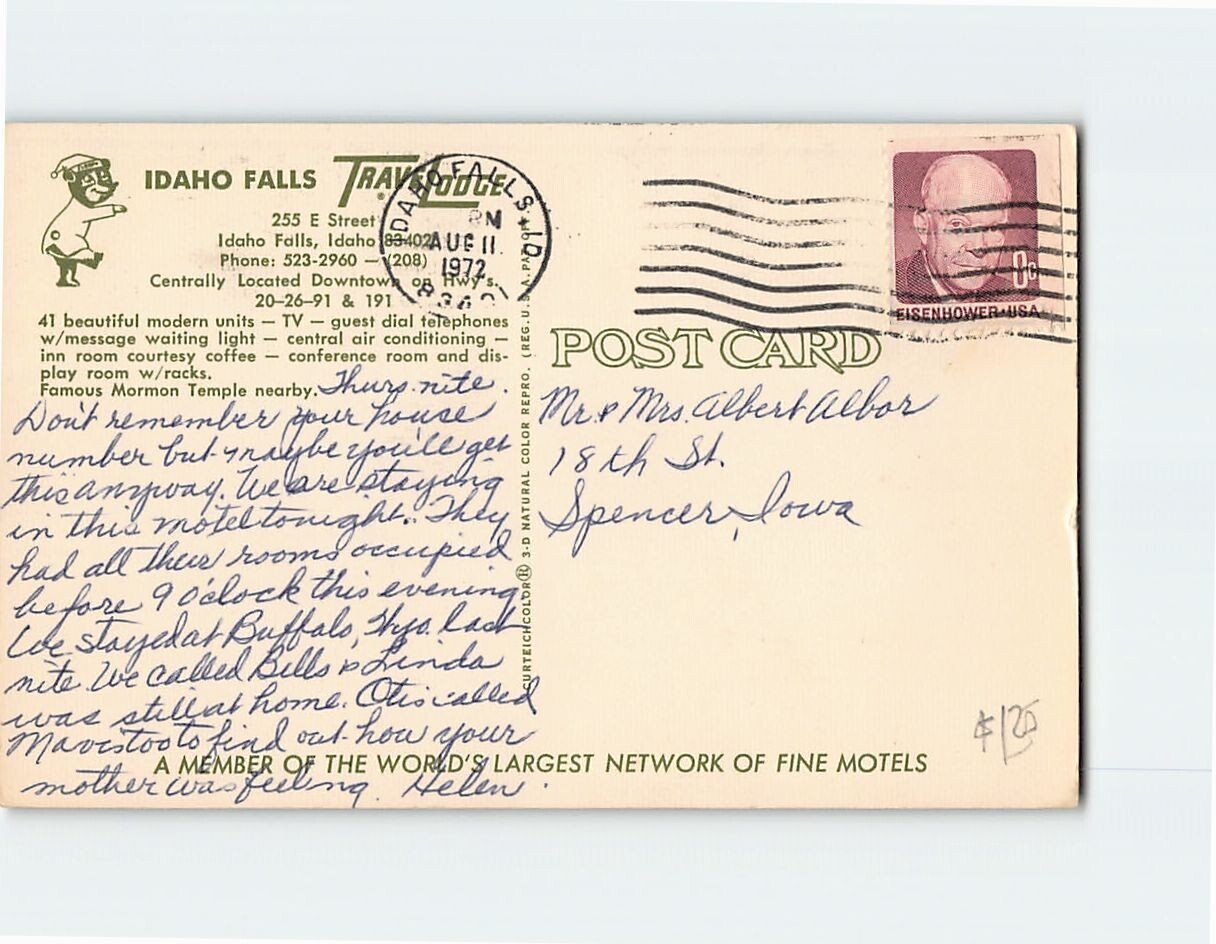 IDAHO FALLS TRAVELODGE
255 E Street
Idaho Falls, Idaho 83402
Phone: 523-2960 — (208)
Centrally Located Downtown on Hwy's.
20-26-91 & 191
41 beautiful modern units — TV — guest dial telephones
w/message waiting light — central air conditioning —
inn room courtesy coffee — conference room and dis-
play room w/racks.
Famous Mormon Temple nearby.
Thurs. nite.
Don't remember your house
number but maybe you'll get
this anyway. We are staying
in this motel tonight. They
had all their rooms occupied
before 9 o'clock this evening
We stayed at Buffalo, Wyo. last
nite. We called Bills & Linda
was still at home. Otis called
Mavis too to find out how your
mother was feeling. Helen.
A MEMBER OF THE WORLD'S LARGEST NETWORK OF FINE MOTELS
IDAHO FALLS, ID
PM
AUG 11
1972
CURTEICHCOLOR® 3-D NATURAL COLOR REPRO. (REG. U.S.A. PAT. OFF.
EISENHOWER·USA
POST CARD
Mr. & Mrs. Albert Albor
18th St.
Spencer, Iowa
$1.25